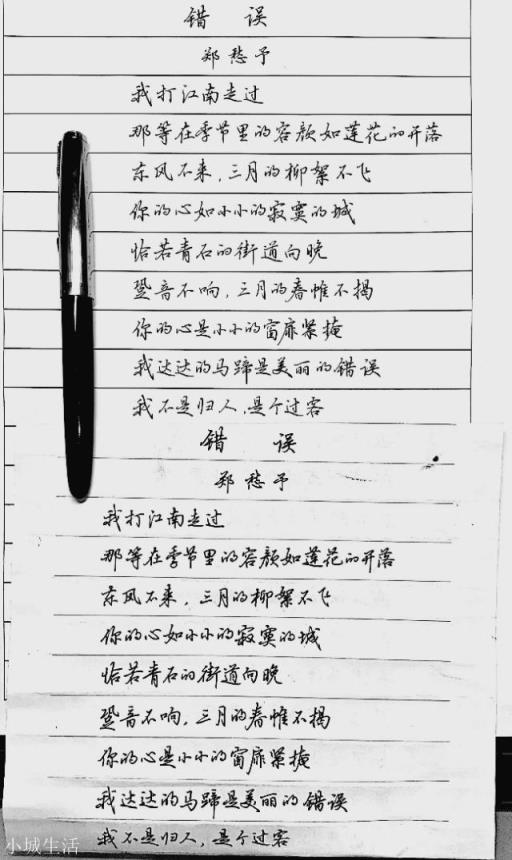 错 误
郑愁予
我打江南走过
那等在季节里的容颜如莲花的开落
东风不来,三月的柳絮不飞
你的心如小小的寂寞的城
恰若青石的街道向晚
跫音不响,三月的春帷不揭
你的心是小小的窗扉紧掩
我达达的马蹄是美丽的错误
我不是归人,是个过客
错 误
郑愁予
我打江南走过
那等在季节里的容颜如莲花的开落
东风不来,三月的柳絮不飞
你的心如小小的寂寞的城
恰若青石的街道向晚
跫音不响,三月的春帷不揭
你的心是小小的窗扉紧掩
我达达的马蹄是美丽的错误
我不是归人,是个过客
小城生活